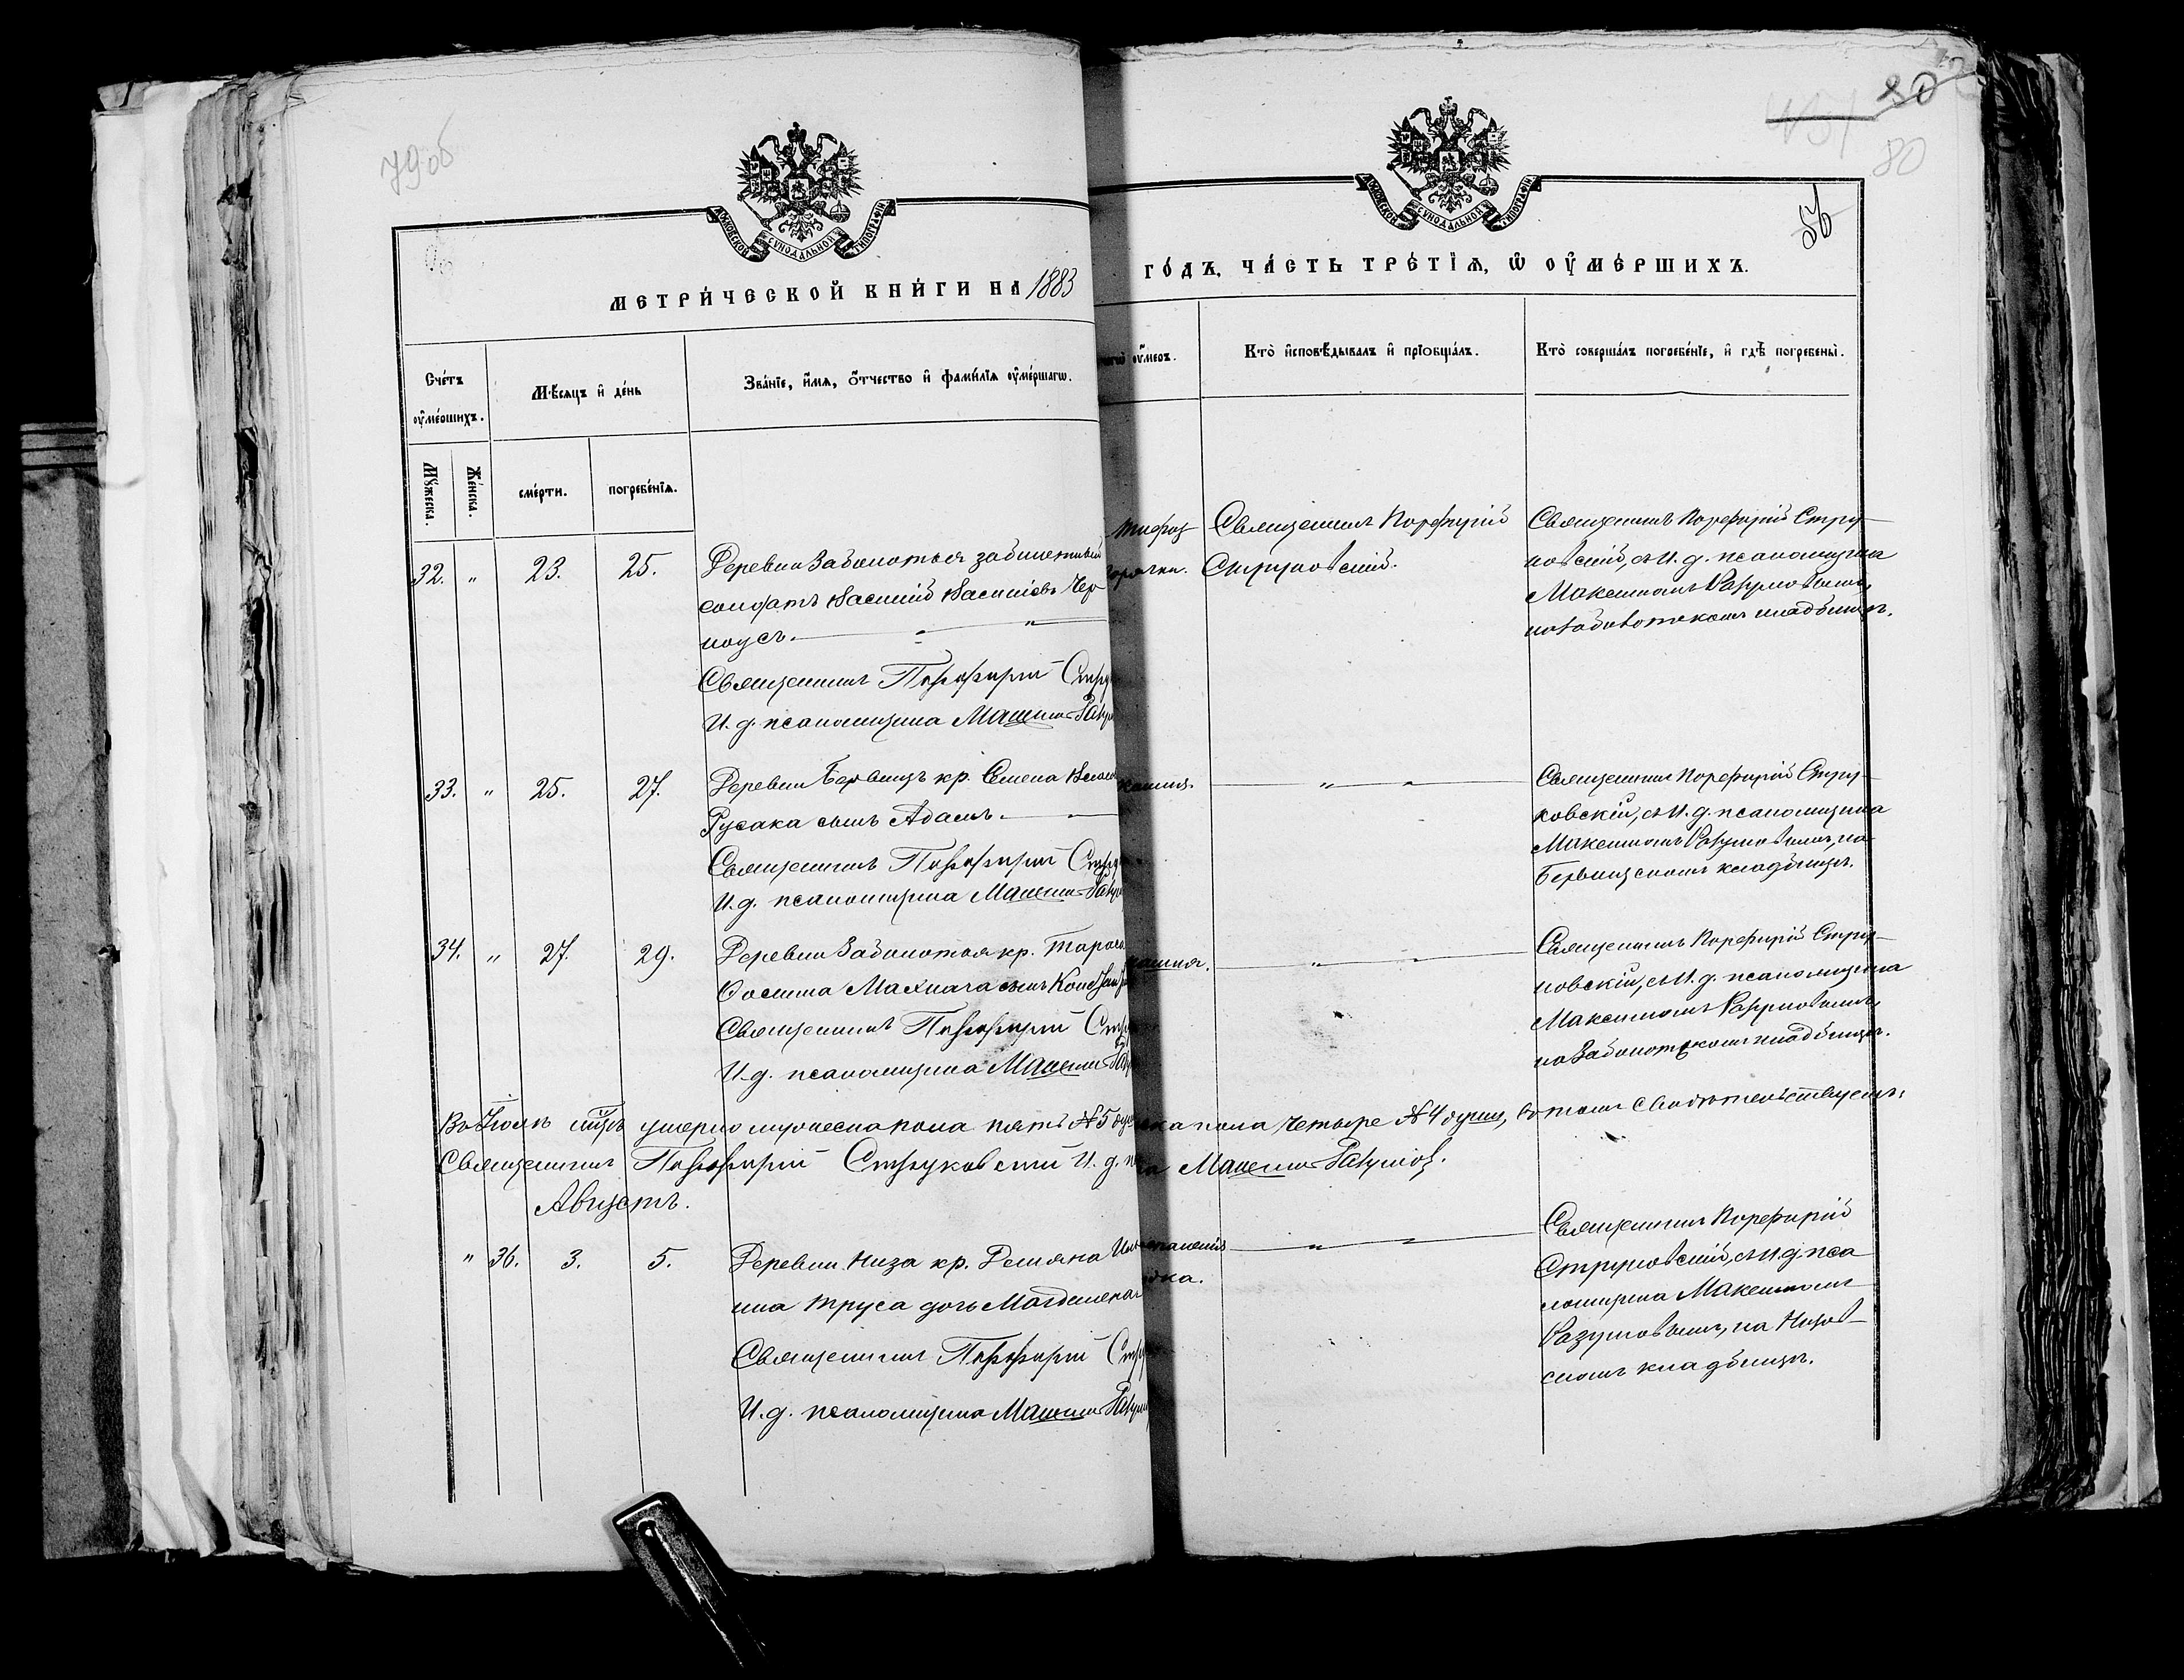 79об
80
80
56
МОСКОВСКОЙ СУНОДАЛЬНОЙ ТИПОГРАФІИ
МОСКОВСКОЙ СУНОДАЛЬНОЙ ТИПОГРАФІИ
МЕТРИ́ЧЕСКОЙ КНИ́ГИ НА 1883
ГО́ДЪ, ЧА́СТЬ ТРЕ́ТІѦ, Ѿ ОУ҆МЕ́РШИХЪ.
Сче́тъ оу҆ме́ршихъ.
Мꙋжеска.
Же́нска.
Мѣ́сяцъ и҆ де́нь
сме́рти.
погребе́нїѧ.
Зва́нїе, и҆́мѧ, о҆́тчество и҆ фами́лїѧ оу҆ме́ршагѡ.
оу҆́меръ.
Кто̀ и҆сповѣ́дывалъ и҆ прїобща́лъ.
Кто̀ соверша́лъ погребе́нїе, и҆ гдѣ̀ погребены̀.
32. " 23. 25.
Деревни Заболотья забилетный
солдатъ Василій Васильевъ Чер
ноусъ.
Священникъ Порфирій Стру
И. д. псаломщика Максимъ Разум
Тифоз
горячки.
Священникъ Порфирій
Струковскій.
Священникъ Порфирій Стру-
ковскій, съ И. д. псаломщика
Максимомъ Разумовымъ,
на Заболотскомъ кладбищѣ.
33. " 25. 27.
Деревни Бервищъ кр. Семена
Русака сынъ Адамъ.
Священникъ Порфирій Стру
И. д. псаломщика Максимъ Разум
кашля.
" "
Священникъ Порфирій Стру-
ковскій, съ И. д. псаломщика
Максимомъ Разумовымъ, на
Бервищскомъ кладбищѣ.
34. " 27. 29.
Деревни Заболотья кр. Тараса
Осипа Махнача сынъ Констан
Священникъ Порфирій Стру
И. д. псаломщика Максимъ Раз
кашля.
" "
Священникъ Порфирій Стру-
ковскій, съ И. д. псаломщика
Максимомъ Разумовымъ
на Заболотскомъ кладбищѣ.
Въ Іюлѣ мцѣ умерло мужеска пола пять №5 душ ска пола четыре №4 души, въ томъ свидѣтельствуемъ:
Священникъ Порфирій Струковскій И. д. п ка Максимъ Разумов.
Августъ.
" 36. 3. 5.
Деревни Низа кр. Демьяна
ина Труса дочь Магдалена
Священникъ Порфирій Стру
И. д. псаломщика Максимъ Разум
" "
Священникъ Порфирій
Струковскій, съ И. д. пса
ломщика Максимомъ
Разумовымъ, на Низов-
скомъ кладбищѣ.